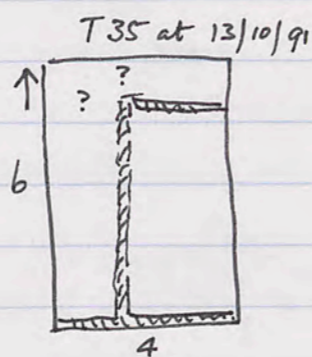 T35 at 13/10/91
?
?
6
4